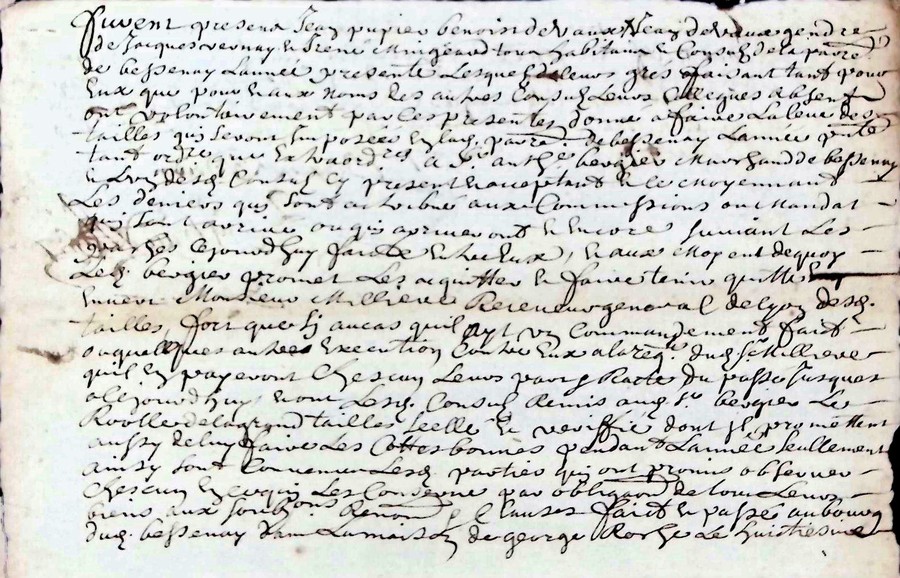 Furent present Jean pupier benoist devaux Jean devaux gendre
de Jacques vernay & Irené Mingeard tous habitans & Consulz de la parre
de bessenay Lannée presente Lesquelz de leurs grés faisant tant pour
Eux que pour & aux noms des autres Consulz Leurs Collegues absentz
ont volontairement par ces presentes donné a faire La leuée des
tailles qui seront Imposées en lad. parre. de bessenay Lannée pnte
tant ordre que Extraordre a Sr anthe bergier Marchand de bessenay
Lun desd. Consulz Cy present & acceptant & ce Moyennant
Les deniers qui sont attribué aux Commissions ou Mandat
qui sont arriué ou qui arriueront & Encore suiuant Les
ce jourdhuy faicte Entre Eux, & aux Moyent dequoy
Led. bergier promet Les acquitter & faire tenir quitte
Enuers Monsieur Milliere Receueur general de Lyon desd.
tailles, fort que sy au cas quil ayt un Commandement faict
ou quelques autres Execution Contre Eux a la reqte dud. Sr Milliere
quil En payeront Chescun Leurs part & Ratte du passé Jusques
a cejourdhuy, & ont Lesd. Consulz Remis aud. Sr bergier Le
Roolle de la grand tailles scellé & veriffié dont Ils promettent
aussy de luy faire Les Cottes bonnes pendant Lannée seullement
ainsy sont Conuenu Lesd. parties qui ont promis obseruer
Chescun En ce qui Les Conserne par obligaon de tous Leurs
biens aux soubzons Renon & Clauses faict & passé au bourg
dud. bessenay dans La maison de george Roche Le huictiesme